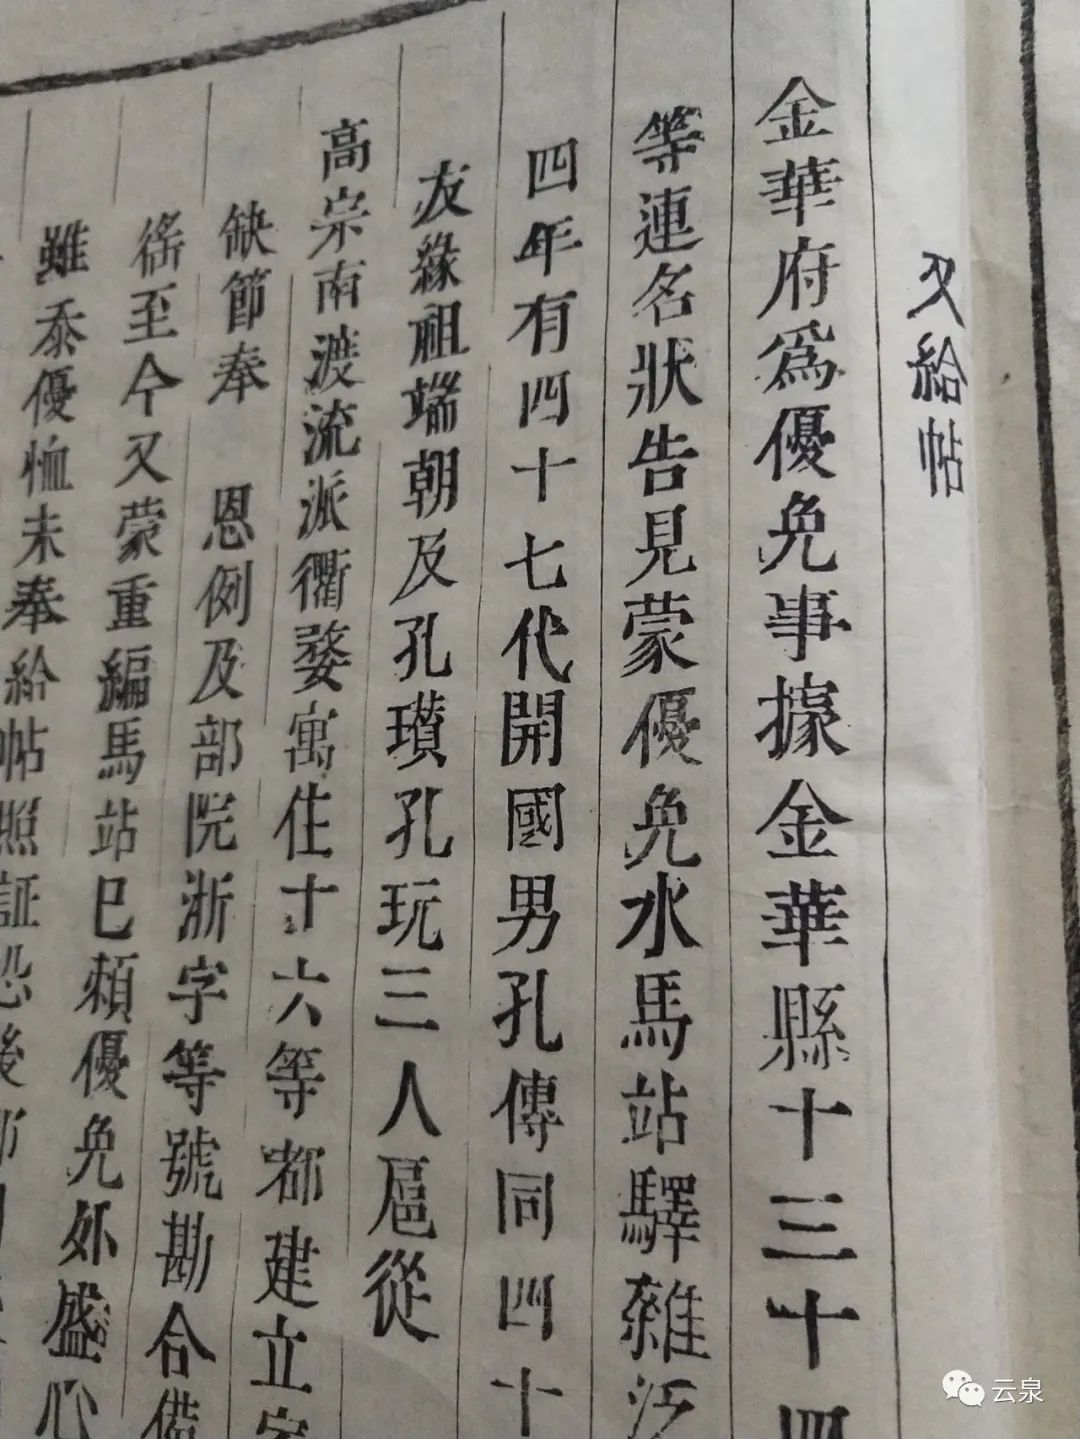 又給帖
金華府為優免事據金華縣十三十四
等連名狀告見蒙優免水馬站驛雜泛
四年有四十七代開國男孔傳同四十
友緣祖端朝及孔瓚孔玩三人扈從
高宗南渡流派衢婺寓住十六等都建立
缺節奉　恩例及部院浙字等號勘合備
徭至今又蒙重編馬站已頼優免外盛心
雖忝優恤未奉給帖照証恐後
云泉